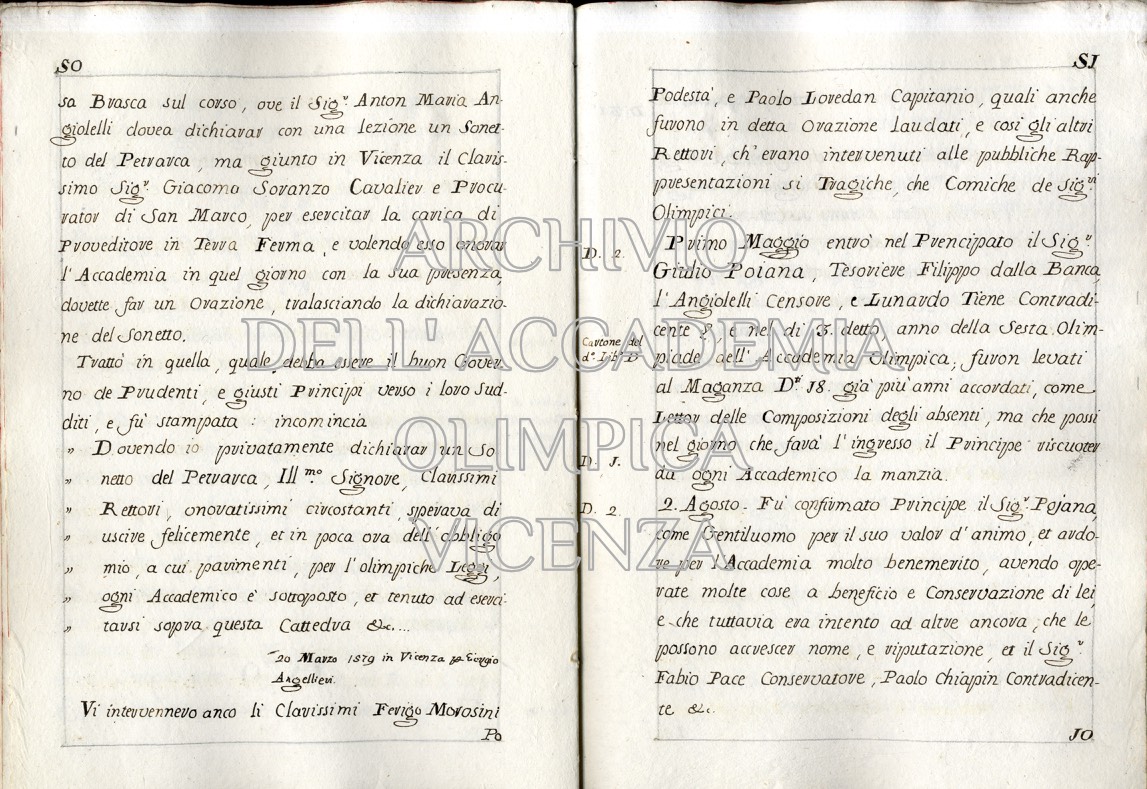 50
sa Brasca sul corso, ove il Sig.r Anton Maria An-
giolelli dovea dichiarar con una lezione un Sonet-
to del Petrarca, ma giunto in Vicenza il Claris-
simo Sig.r Giacomo Soranzo Cavalier e Procu-
rator di San Marco, per esercitar la carica di
Proveditore in Terra Ferma, e volendo esso onorar
l'Accademia in quel giorno con la sua presenza,
dovette far un Orazione, tralasciando la dichiarazio-
ne del Sonetto.
Trattò in quella, quale debba essere il buon Gover-
no de Prudenti, e giusti Principi verso i loro Sud-
diti, e fù stampata: incomincia
„ Dovendo io privatamente dichiarar un So
„ netto del Petrarca, Ill.mo Signore, Clarissimi
„ Rettori, onoratissimi circostanti, sperava di
„ uscire felicemente, et in poca ora dell'obbligo
„ mio, a cui parimenti, per l'olimpiche Leggi,
„ ogni Accademico è sottoposto, et tenuto ad eserci-
„ tarsi sopra questa Cattedra &c....
20 Marzo 1579 in Vicenza pr Giorgio
Angellieri
Vi intervennero anco li Clarissimi Ferigo Morosini
Po
51
Podestà, e Paolo Loredan Capitanio, quali anche
furono in detta Orazione laudati, e così gli altri
Rettori, ch'erano intervenuti alle pubbliche Rap-
presentazioni sì Tragiche, che Comiche de Sig.ri
Olimpici.
D. 2. Primo Maggio entrò nel Prencipato il Sig.r
Giulio Poiana, Tesoriere Filippo dalla Banca,
l'Angiolelli Censore, e Lunardo Tiene Contradi-
Cartone del cente 8, e nel dì 3. detto anno della Sesta Olim-
d.o Lib. D piade dell'Accademia Olimpica, furon levati
al Maganza D.ti 18. già più anni accordati, come
Lettor delle Composizioni degli absenti, ma che possi
nel giorno che farà l'ingresso il Principe riscuoter
D. J. da ogni Accademico la manzia.
D. 2. 2. Agosto. Fù confirmato Principe il Sig.r Pojana,
come Gentiluomo per il suo valor d'animo, et ardo-
re per l'Accademia molto benemerito, avendo ope-
rate molte cose a beneficio e Conservazione di lei,
e che tuttavia era intento ad altre ancora, che le
possono accrescer nome, e riputazione, et il Sig.r
Fabio Pace Conservatore, Paolo Chiapin Contradicen-
te &c.
JO
ARCHIVIO
DELL'ACCADEMIA
OLIMPICA
VICENZA